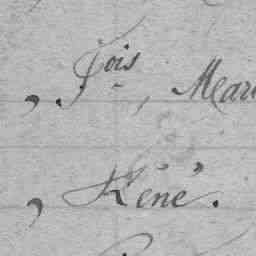 , Fois, Mar
, Réné.